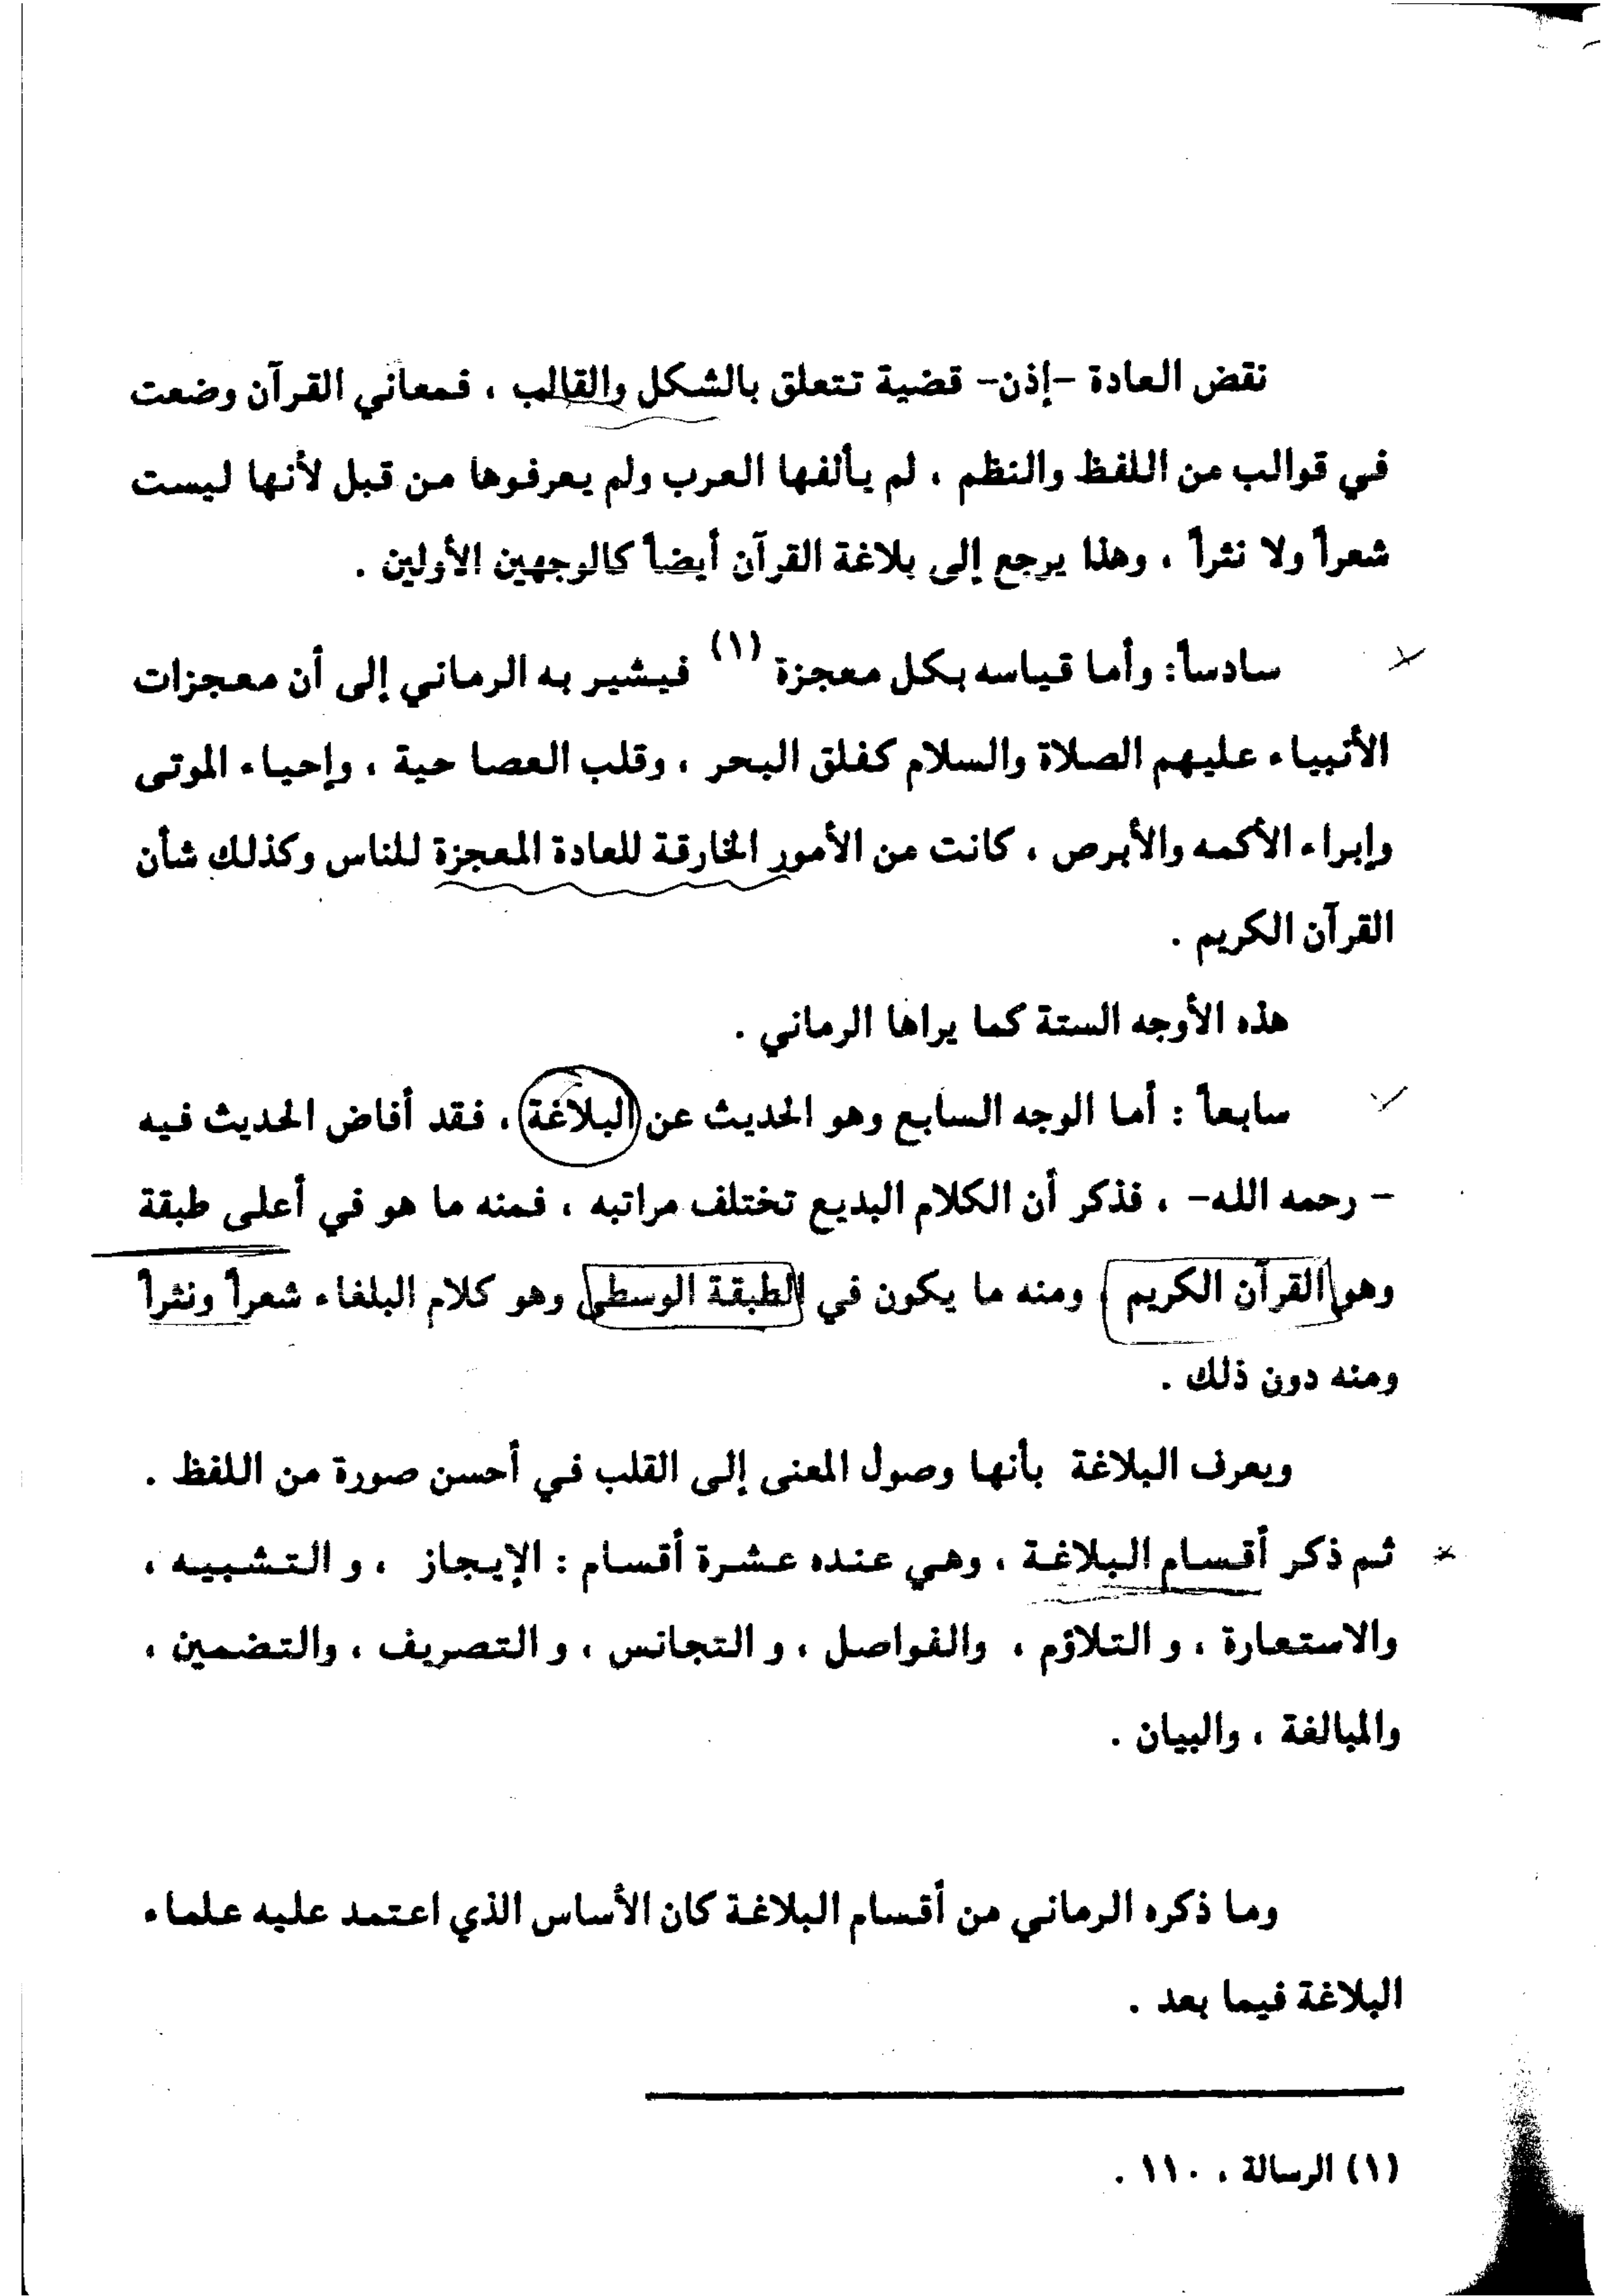 نقض العادة -إذن- قضية تتعلق بالشكل والقالب ، فمعاني القرآن وضعت
في قوالب من اللفظ والنظم ، لم يألفها العرب ولم يعرفوها من قبل لأنها ليست
شعراً ولا نثراً ، وهذا يرجع إلى بلاغة القرآن أيضاً كالوجهين الأولين .
سادساً: وأما قياسه بكل معجزة (١) فيشير به الرماني إلى أن معجزات
الأنبياء عليهم الصلاة والسلام كفلق البحر ، وقلب العصا حية ، وإحياء الموتى
وإبراء الأكمه والأبرص ، كانت من الأمور الخارقة للعادة المعجزة للناس وكذلك شأن
القرآن الكريم .
هذه الأوجه الستة كما يراها الرماني .
سابعاً : أما الوجه السابع وهو الحديث عن البلاغة ، فقد أفاض الحديث فيه
- رحمه الله- ، فذكر أن الكلام البديع تختلف مراتبه ، فمنه ما هو في أعلى طبقة
وهو القرآن الكريم ، ومنه ما يكون في الطبقة الوسطى وهو كلام البلغاء شعراً ونثراً
ومنه دون ذلك .
ويعرف البلاغة بأنها وصول المعنى إلى القلب في أحسن صورة من اللفظ .
ثم ذكر أقسام البلاغة ، وهي عنده عشرة أقسام : الإيجاز ، و التشبيه ،
والاستعارة ، و التلاؤم ، والفواصل ، و التجانس ، و التصريف ، والتضمين ،
والمبالغة ، والبيان .
وما ذكره الرماني من أقسام البلاغة كان الأساس الذي اعتمد عليه علماء
البلاغة فيما بعد .
(١) الرسالة ، ١١٠ .